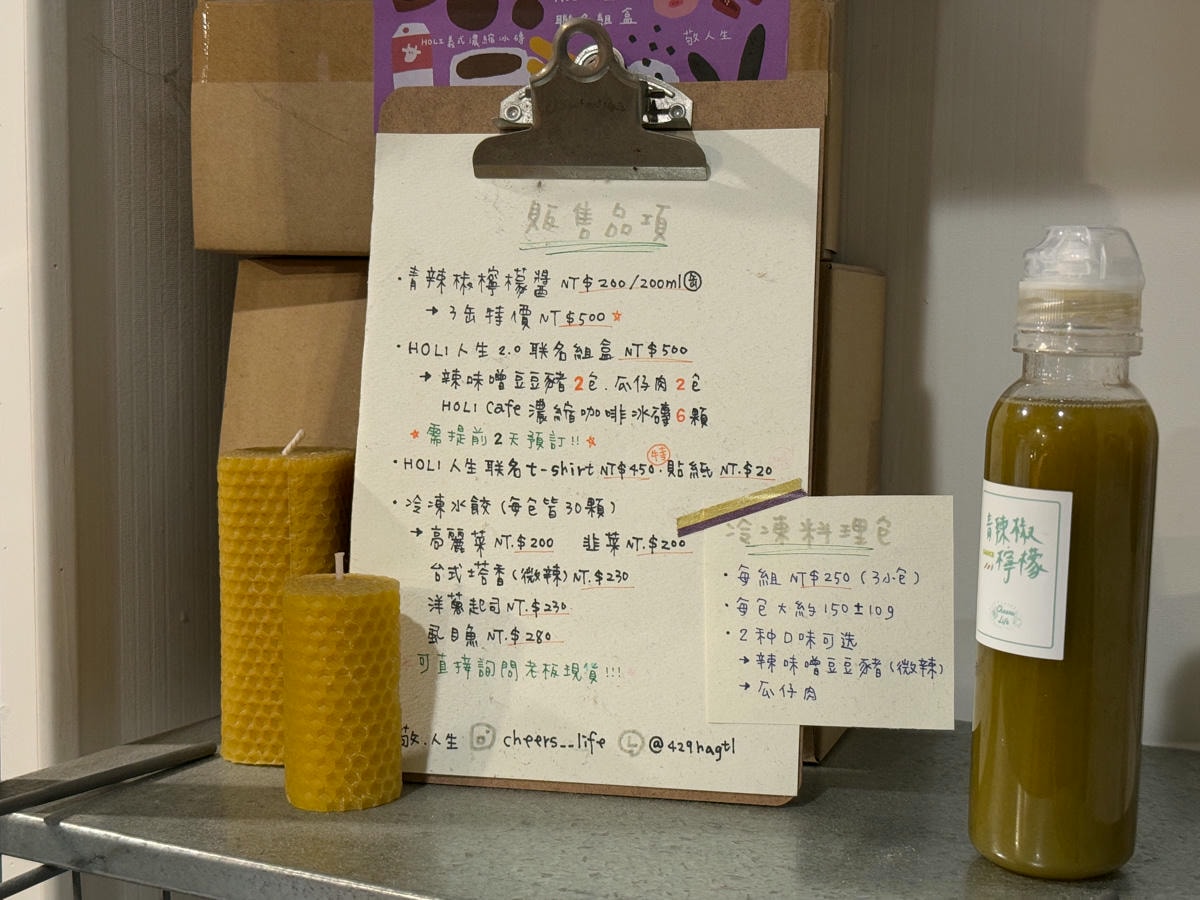 聯名組盒
HOLI義式濃縮冰磚
敬人生
販售品項
·青辣椒檸檬醬 NT$200/200ml
→3缶特價 NT$500☆
·HOLI人生2.0联名組盒 NT$500
→辣味噌豆豆豬2包.瓜仔肉2包
HOLI Cafe 濃縮咖啡冰磚6顆
☆需提前2天預訂!!☆
·HOLI人生联名t-shirt NT$450.貼紙 NT.$20
特
·冷凍水餃(每包皆30顆)
→高麗菜 NT.$200 韭菜 NT.$200
台式塔香(微辣) NT.$230
洋蔥起司 NT.$230
虱目魚 NT.$280
可直接詢問老板現貨!!!
敬.人生 cheers__life L @429hagtl
冷凍料理包
·每組 NT$250(3小包)
·每包大約150±10g
·2种口味可选
→辣味噌豆豆豬(微辣)
→瓜仔肉
青辣椒
檸檬
Cheers
Life